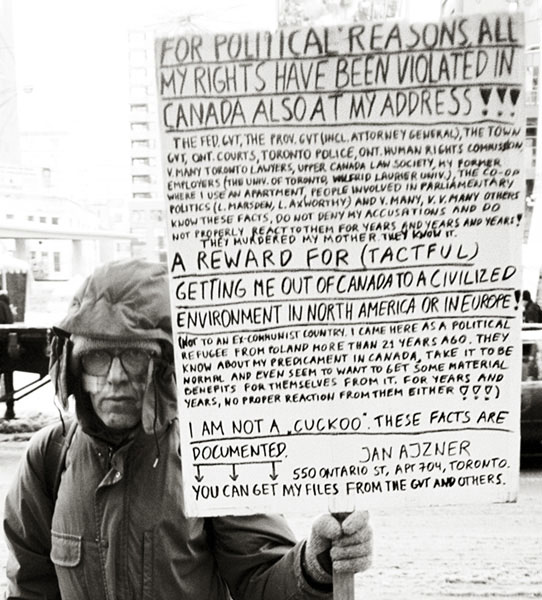 FOR POLITICAL REASONS, ALL
MY RIGHTS HAVE BEEN VIOLATED IN
CANADA ALSO AT MY ADDRESS !!!
THE FED. GVT, THE PROV. GVT (INCL. ATTORNEY GENERAL), THE TOWN
GVT, ONT. COURTS, TORONTO POLICE, ONT. HUMAN RIGHTS COMMISSION,
V. MANY TORONTO LAWYERS, UPPER CANADA LAW SOCIETY, MY FORMER
EMPLOYERS (THE UNIV. OF TORONTO, WILFRID LAURIER UNIV.), THE CO-OP
WHERE I USE AN APARTMENT, PEOPLE INVOLVED IN PARLIAMENTARY
POLITICS (L. MARSDEN, L. AXWORTHY) AND V. MANY, V. V. MANY OTHERS
KNOW THESE FACTS, DO NOT DENY MY ACCUSATIONS AND DO
NOT PROPERLY REACT TO THEM FOR YEARS AND YEARS AND YEARS!
THEY MURDERED MY MOTHER. THEY KNOW IT.
A REWARD FOR (TACTFUL)
GETTING ME OUT OF CANADA TO A CIVILIZED
ENVIRONMENT IN NORTH AMERICA OR IN EUROPE!
(NOT TO AN EX-COMMUNIST COUNTRY. I CAME HERE AS A POLITICAL
REFUGEE FROM POLAND MORE THAN 21 YEARS AGO. THEY
KNOW ABOUT MY PREDICAMENT IN CANADA, TAKE IT TO BE
NORMAL AND EVEN SEEM TO WANT TO GET SOME MATERIAL
BENEFITS FOR THEMSELVES FROM IT. FOR YEARS AND
YEARS, NO PROPER REACTION FROM THEM EITHER !?!?!)
I AM NOT A „CUCKOO". THESE FACTS ARE
DOCUMENTED. JAN AJZNER
↓ ↓ ↓ 550 ONTARIO ST, APT 704, TORONTO.
YOU CAN GET MY FILES FROM THE GVT AND OTHERS.